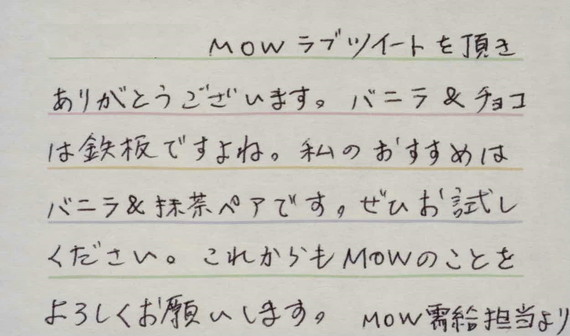 MOWラブツイートを頂き
ありがとうございます。バニラ&チョコ
は鉄板ですよね。私のおすすめは
バニラ&抹茶ペアです。ぜひお試し
ください。これからもMOWのことを
よろしくお願いします。 MOW需給担当より